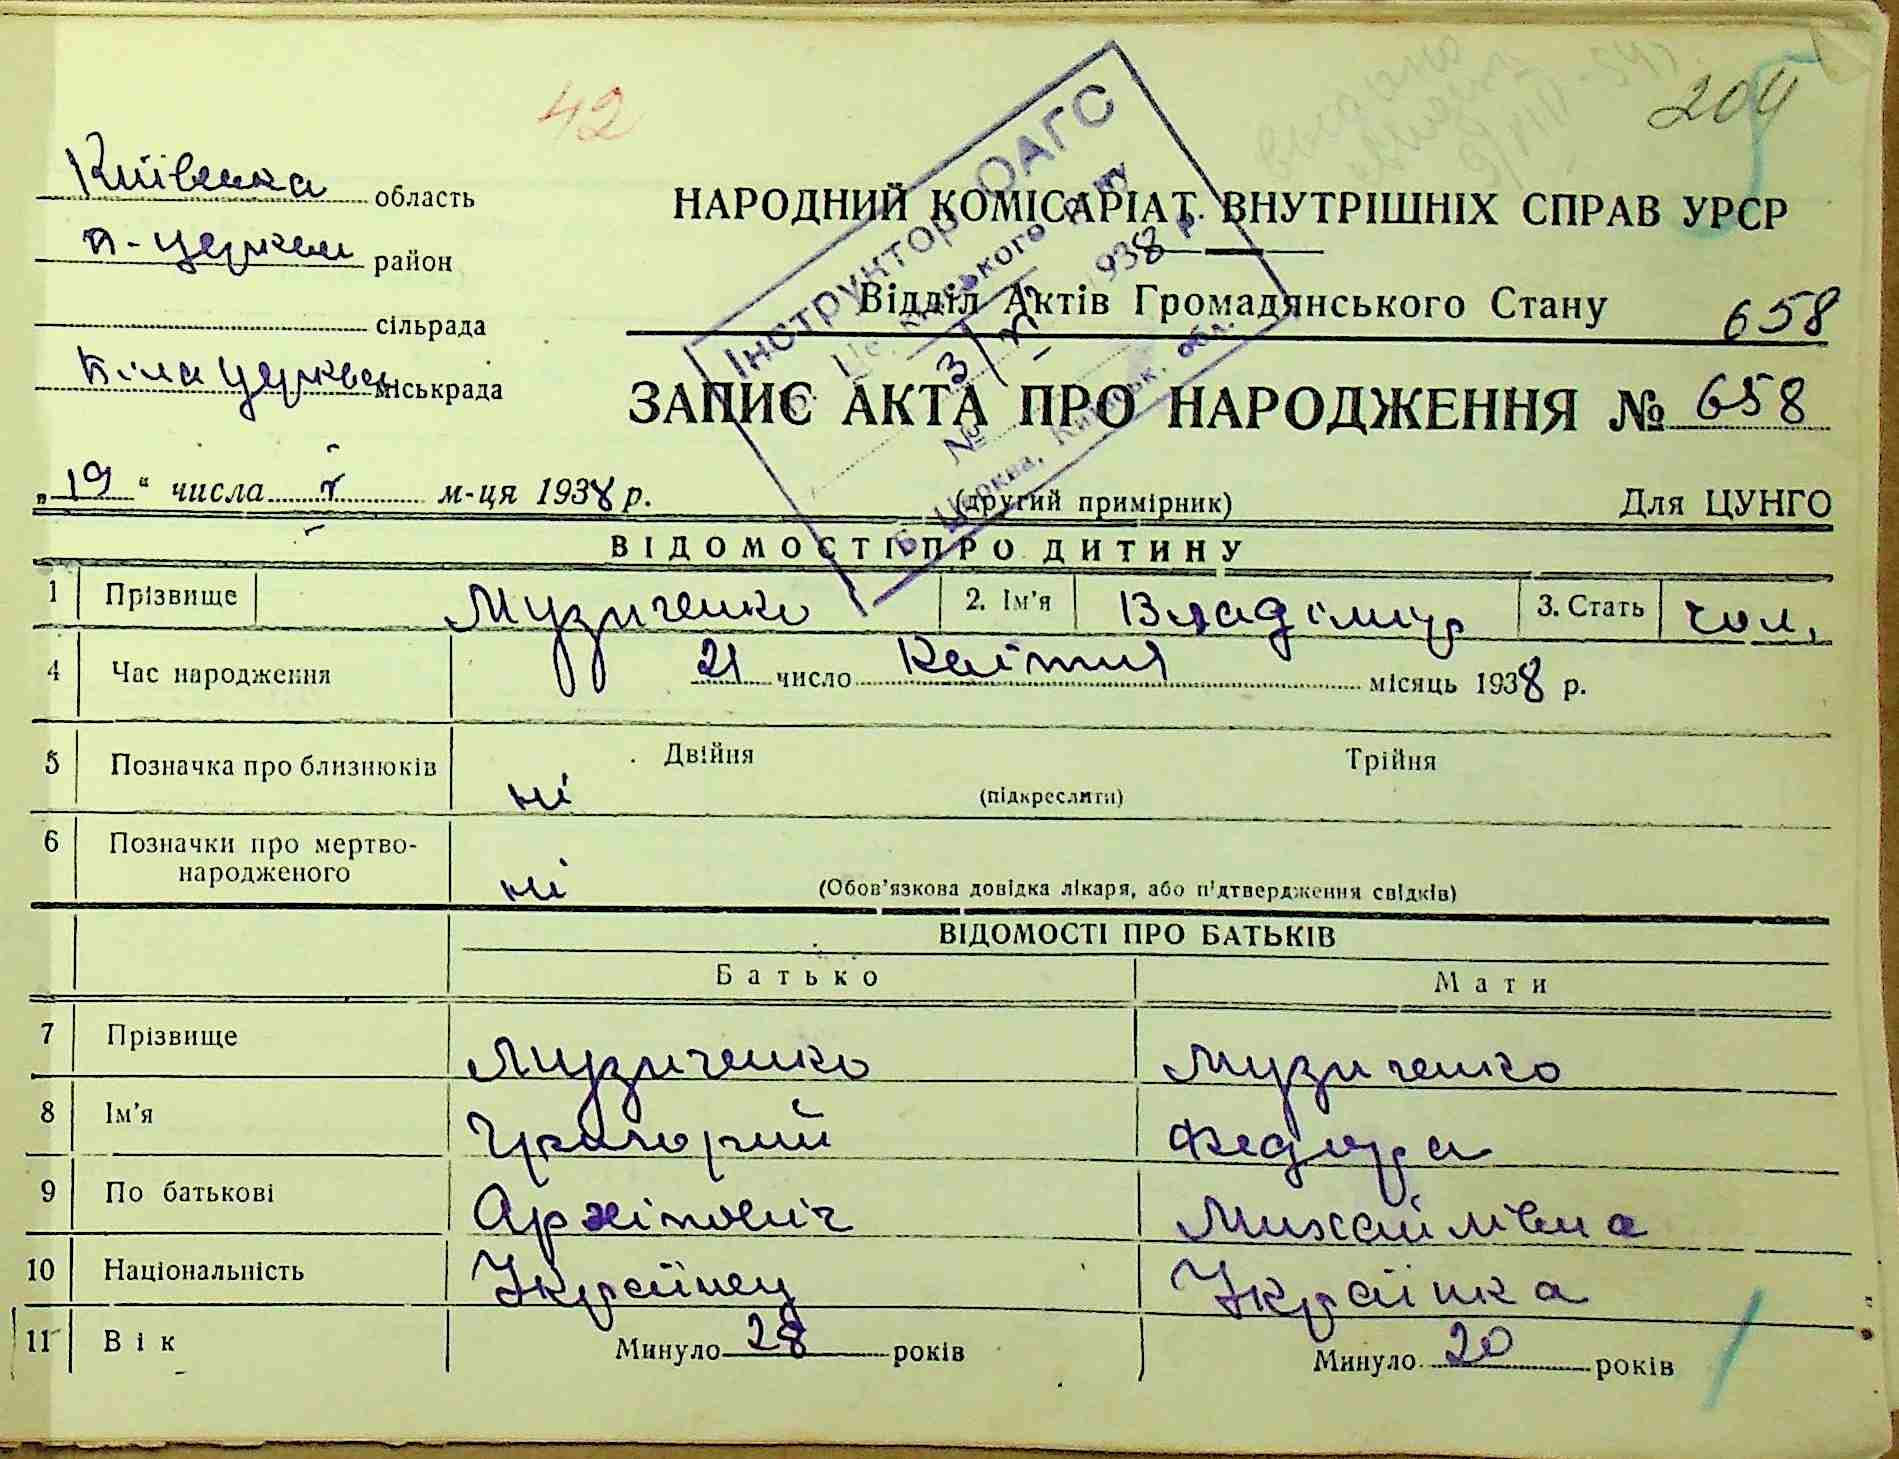 42
204
Київська область
НАРОДНИЙ КОМІСАРІАТ ВНУТРІШНІХ СПРАВ УРСР
район
Відділ Актів Громадянського Стану 658
сільрада
Біла церква міськрада
ЗАПИС АКТА ПРО НАРОДЖЕННЯ № 658
Інструктор ОАГС
1938 р.
№
Б. Церква, Київськ. обл.
„19“ числа V м-ця 1938 р.
(другий примірник) Для ЦУНГО
ВІДОМОСТІ ПРО ДИТИНУ
1 Прізвище Музиченко 2. Ім'я Владімир 3. Стать чол.
4 Час народження 21 число Квітня місяць 1938 р.
5 Позначка про близнюків ні Двійня Трійня
(підкреслити)
6 Позначки про мертво-
народженого ні (Обов'язкова довідка лікаря, або підтвердження свідків)
ВІДОМОСТІ ПРО БАТЬКІВ
Батько Мати
7 Прізвище Музиченко Музиченко
8 Ім'я Григорий Федора
9 По батькові Архіпович Михайлівна
10 Національність Українец Українка
11 Вік Минуло 28 років Минуло 20 років